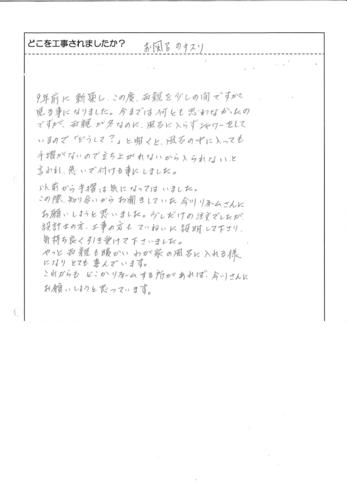 どこを工事されましたか？ お風呂のテスリ
9年前に新築し、この度、母親を少しの間ですが
見る事になりました。今までは何とも思わなかったの
ですが、母親が冬なのに、風呂に入らずシャワーをして
いるので「どうして？」と聞くと、風呂の中に入っても
手摺がないので立ち上がれないから入られないと
言われ、急いで付ける事にしました。
以前から手摺は気になってはいました。
この際、知り合いからお聞きしていた今川リフォームさんに
お願いしようと思いました。少しだけの注文でしたが
設計士の方、工事の方もていねいに説明して下さり、
気持ち良く引き受けて下さいました。
やっと母親も暖かいわが家の風呂に入れる様
になりとても喜んでいます。
これからもどこかリフォームする所があれば、今川さんに
お願いしようと思っています。